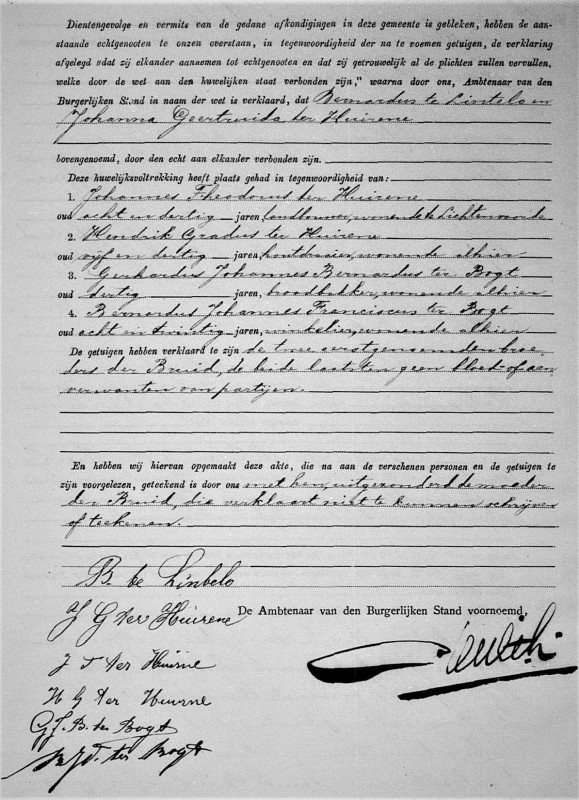 Dientengevolge en vermits van de gedane afkondigingen in deze gemeente is gebleken, hebben de aan-
staande echtgenooten te onzen overstaan, in tegenwoordigheid der na te noemen getuigen, de verklaring
afgelegd »dat zij elkander aannemen tot echtgenooten en dat zij getrouwelijk al de plichten zullen vervullen,
welke door de wet aan den huwelijken staat verbonden zijn,” waarna door ons, Ambtenaar van den
Burgerlijken Stand in naam der wet is verklaard, dat Bernardus te Lintelo en
Johanna Geertruida ter Huirene
bovengenoemd, door den echt aan elkander verbonden zijn.
Deze huwelijksvoltrekking heeft plaats gehad in tegenwoordigheid van:
1. Johannes Theodorus ter Huirene
oud acht en dertig jaren, landbouwer, wonende te Lichtenvoorde
2. Hendrik Gradus ter Huirene
oud vijf en dertig jaren, wonende alhier
3. Gerhardus Johannes Bernardus ter Bogt
oud dertig jaren, broodbakker, wonende alhier
4. Bernardus Johannes Franciscus ter Bogt
oud acht en twintig jaren, winkelier, wonende alhier
De getuigen hebben verklaard te zijn de twee eerstgenoemden broe-
ders der Bruid, de beide laatsten geen bloed- of aan-
verwanten van partijen.
En hebben wij hiervan opgemaakt deze akte, die na aan de verschenen personen en de getuigen te
zijn voorgelezen, geteekend is door ons met hen, uitgezonderd de moeder
der Bruid, die verklaart niet te kunnen schrijven
of teekenen.
B. te Linbelo
J G ter Huirene
De Ambtenaar van den Burgerlijken Stand voornoemd,
J T ter Huirne
H G ter Huurne
G.J.B. ter Bogt
B J F. ter Bogt